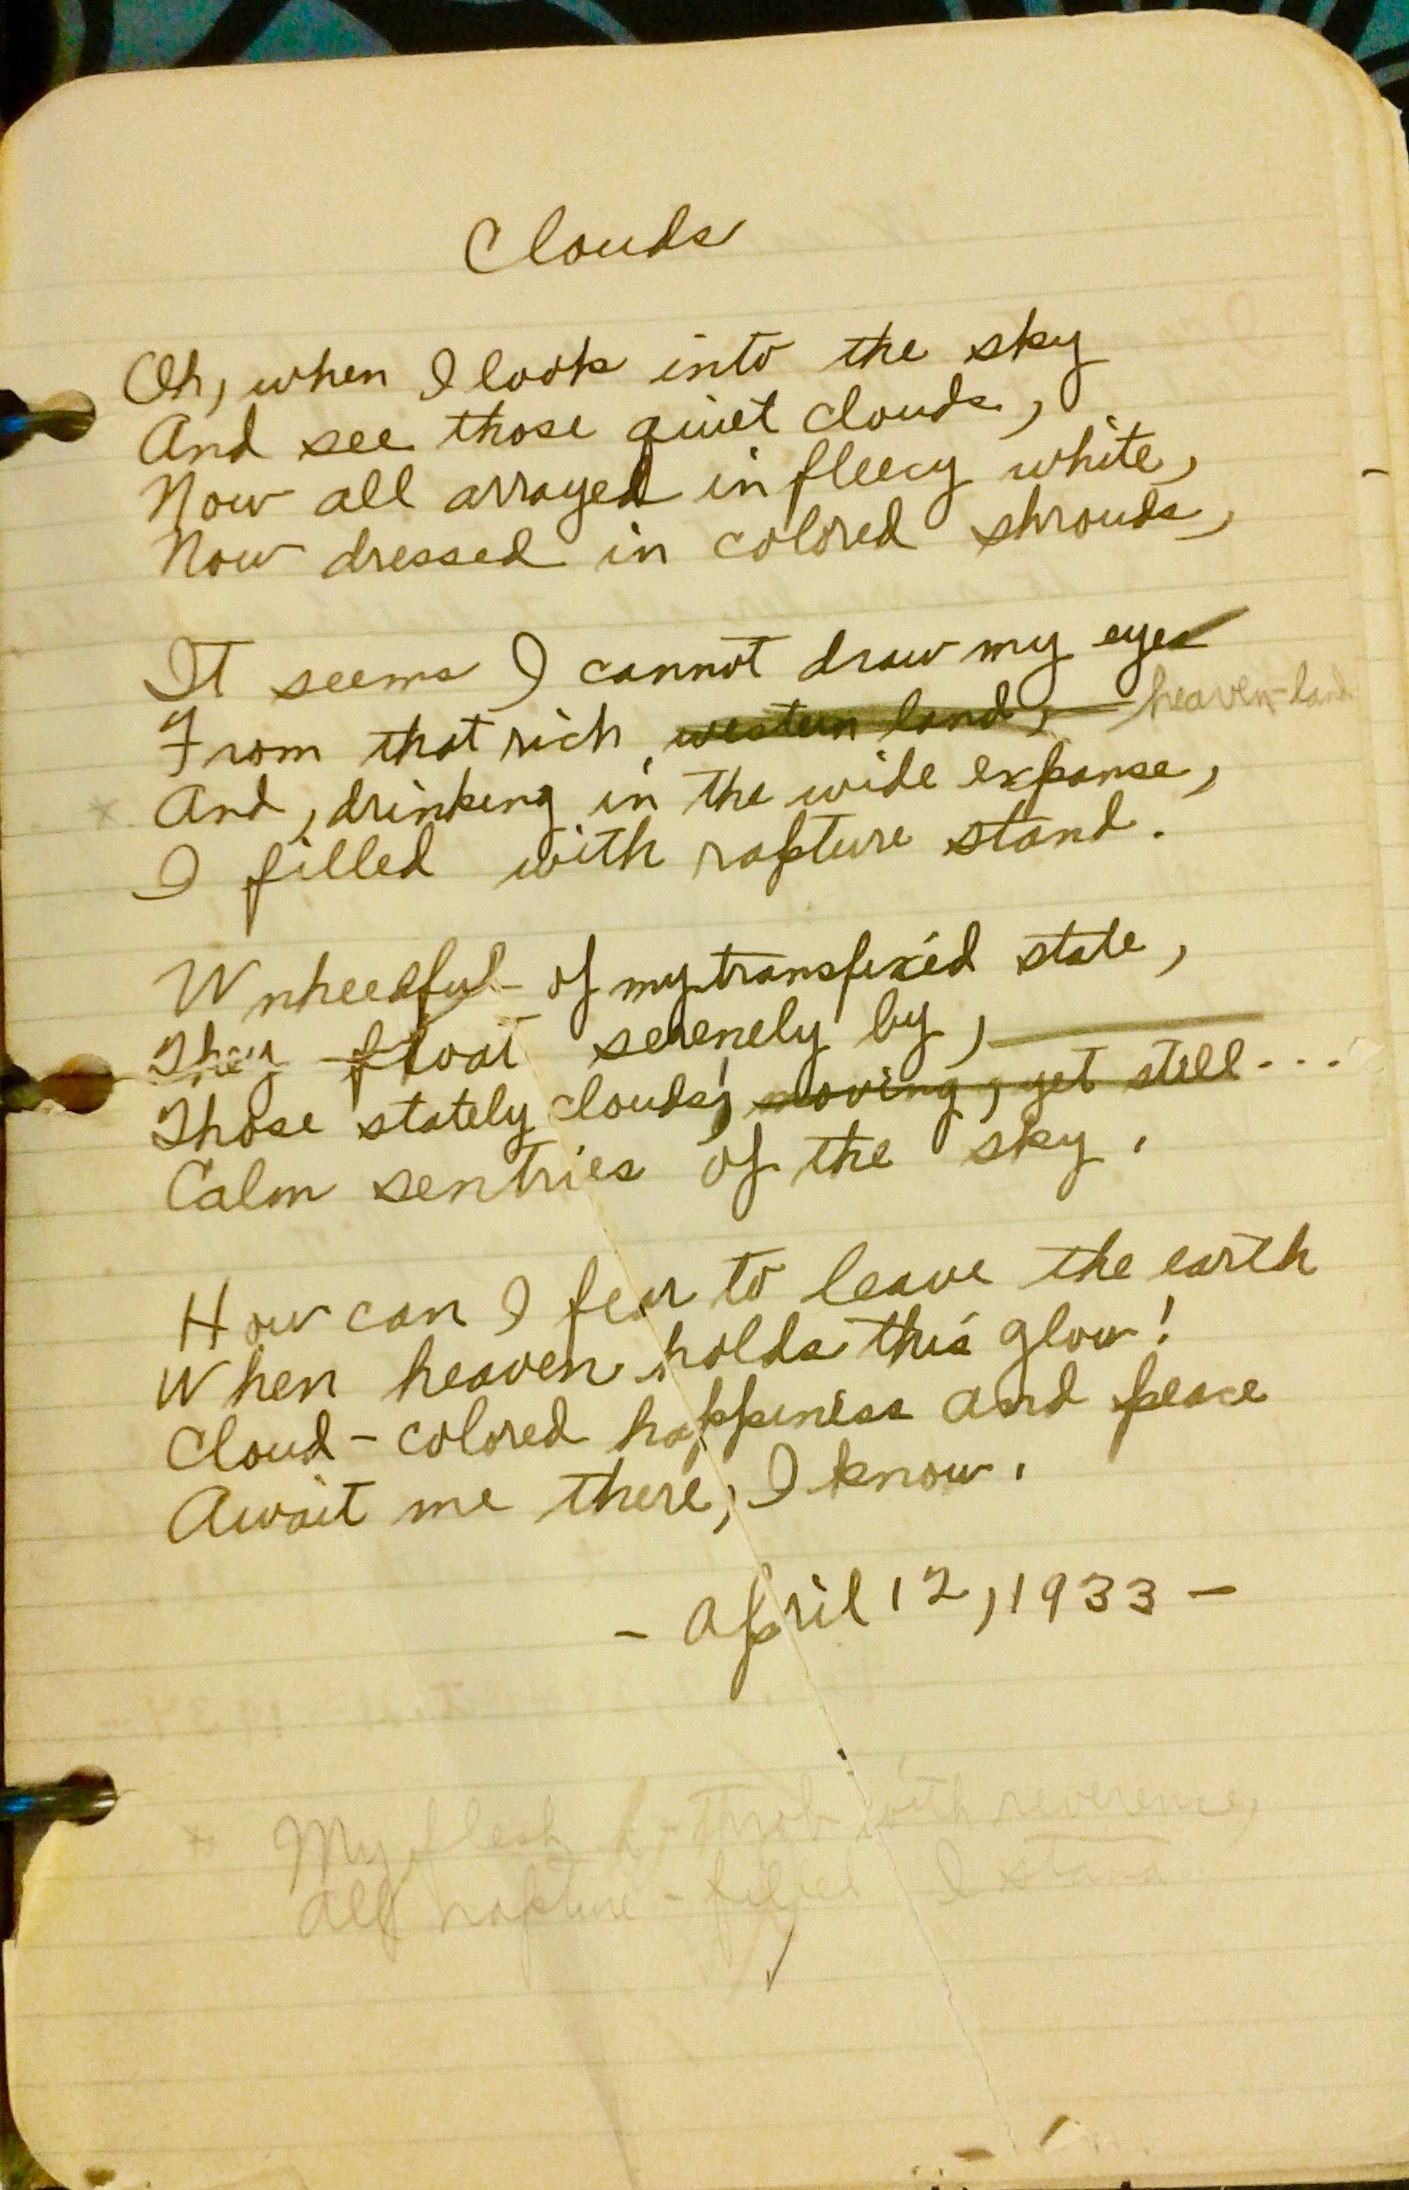 Clouds
Oh, when I look into the sky
And see those quiet clouds,
Now all arrayed in fleecy white,
Now dressed in colored shrouds,
It seems I cannot draw my eyes
From that rich western land, heaven-land
* And, drinking in the wide expanse,
I filled with rapture stand.
Unheedful of my transfixéd state,
They float serenely by,
Those stately clouds, moving, yet still...
Calm sentries of the sky.
How can I fear to leave the earth
When heaven holds this glow!
Cloud-colored happiness and peace
Await me there, I know.
- April 12, 1933 -
* My flesh with reverence,
All rapture-filled I stand